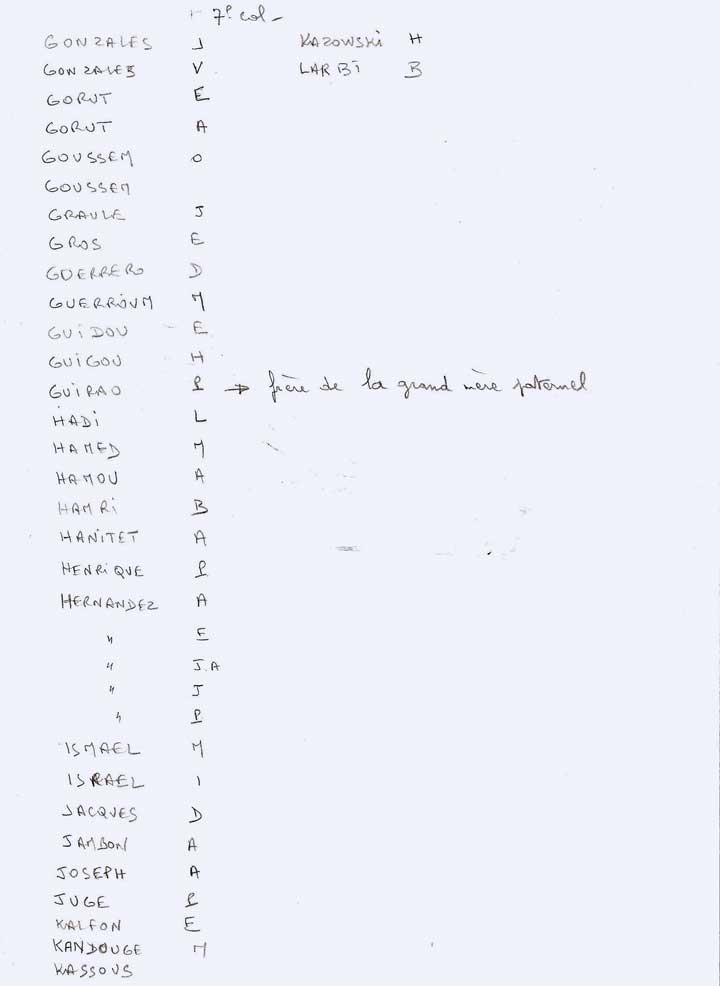 7e col -
GONZALES J KAZOWSKI H
GONZALES V LARBI B
GORUT E
GORUT A
GOUSSEM O
GOUSSEM
GRAULE J
GROS E
GUERRERO D
GUERRIOUM M
GUIDOU E
GUIGOU H
GUIRAO P → frère de la grand mère paternel
HADI L
HAMED M
HAMOU A
HAMRI B
HANITET A
HENRIQUE P
HERNANDEZ A
" E
" J.A
" J
" P
ISMAEL M
ISRAEL I
JACQUES D
JAMBON A
JOSEPH A
JUGE P
KALFON E
KANDOUGE M
KASSOUS